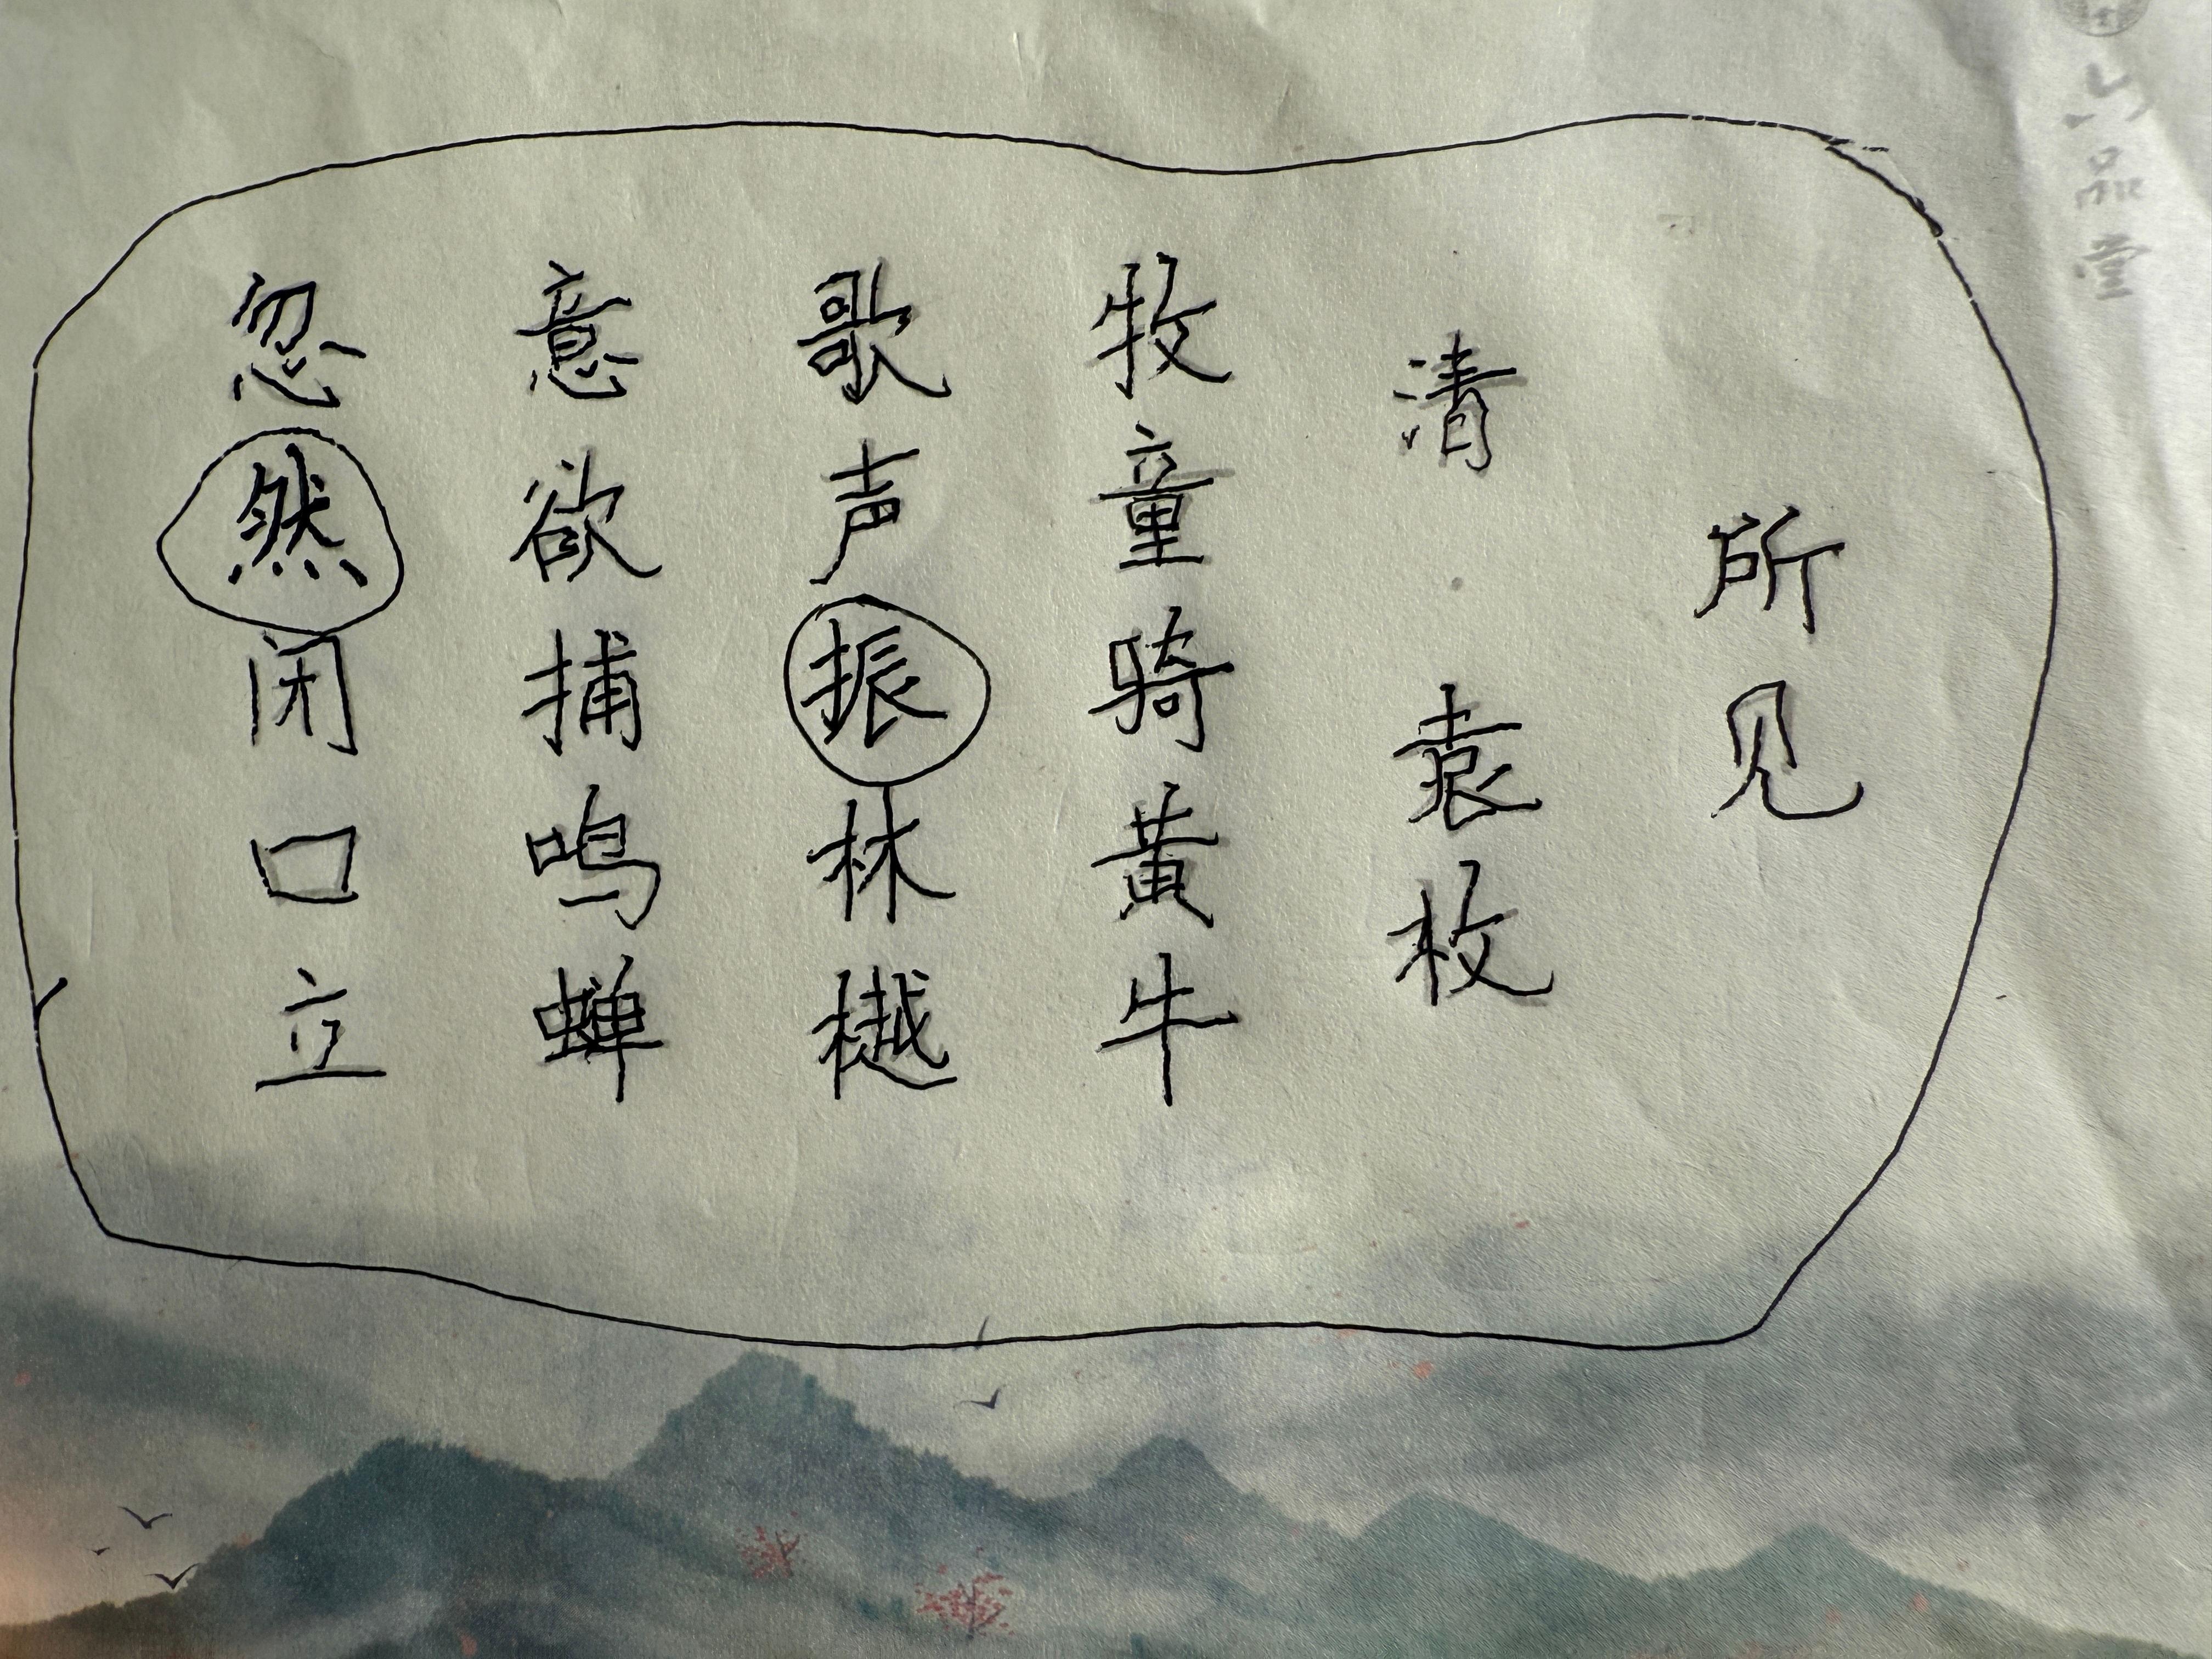 六品堂
所见
清·袁枚
牧童骑黄牛
歌声振林樾
意欲捕鸣蝉
忽然闭口立